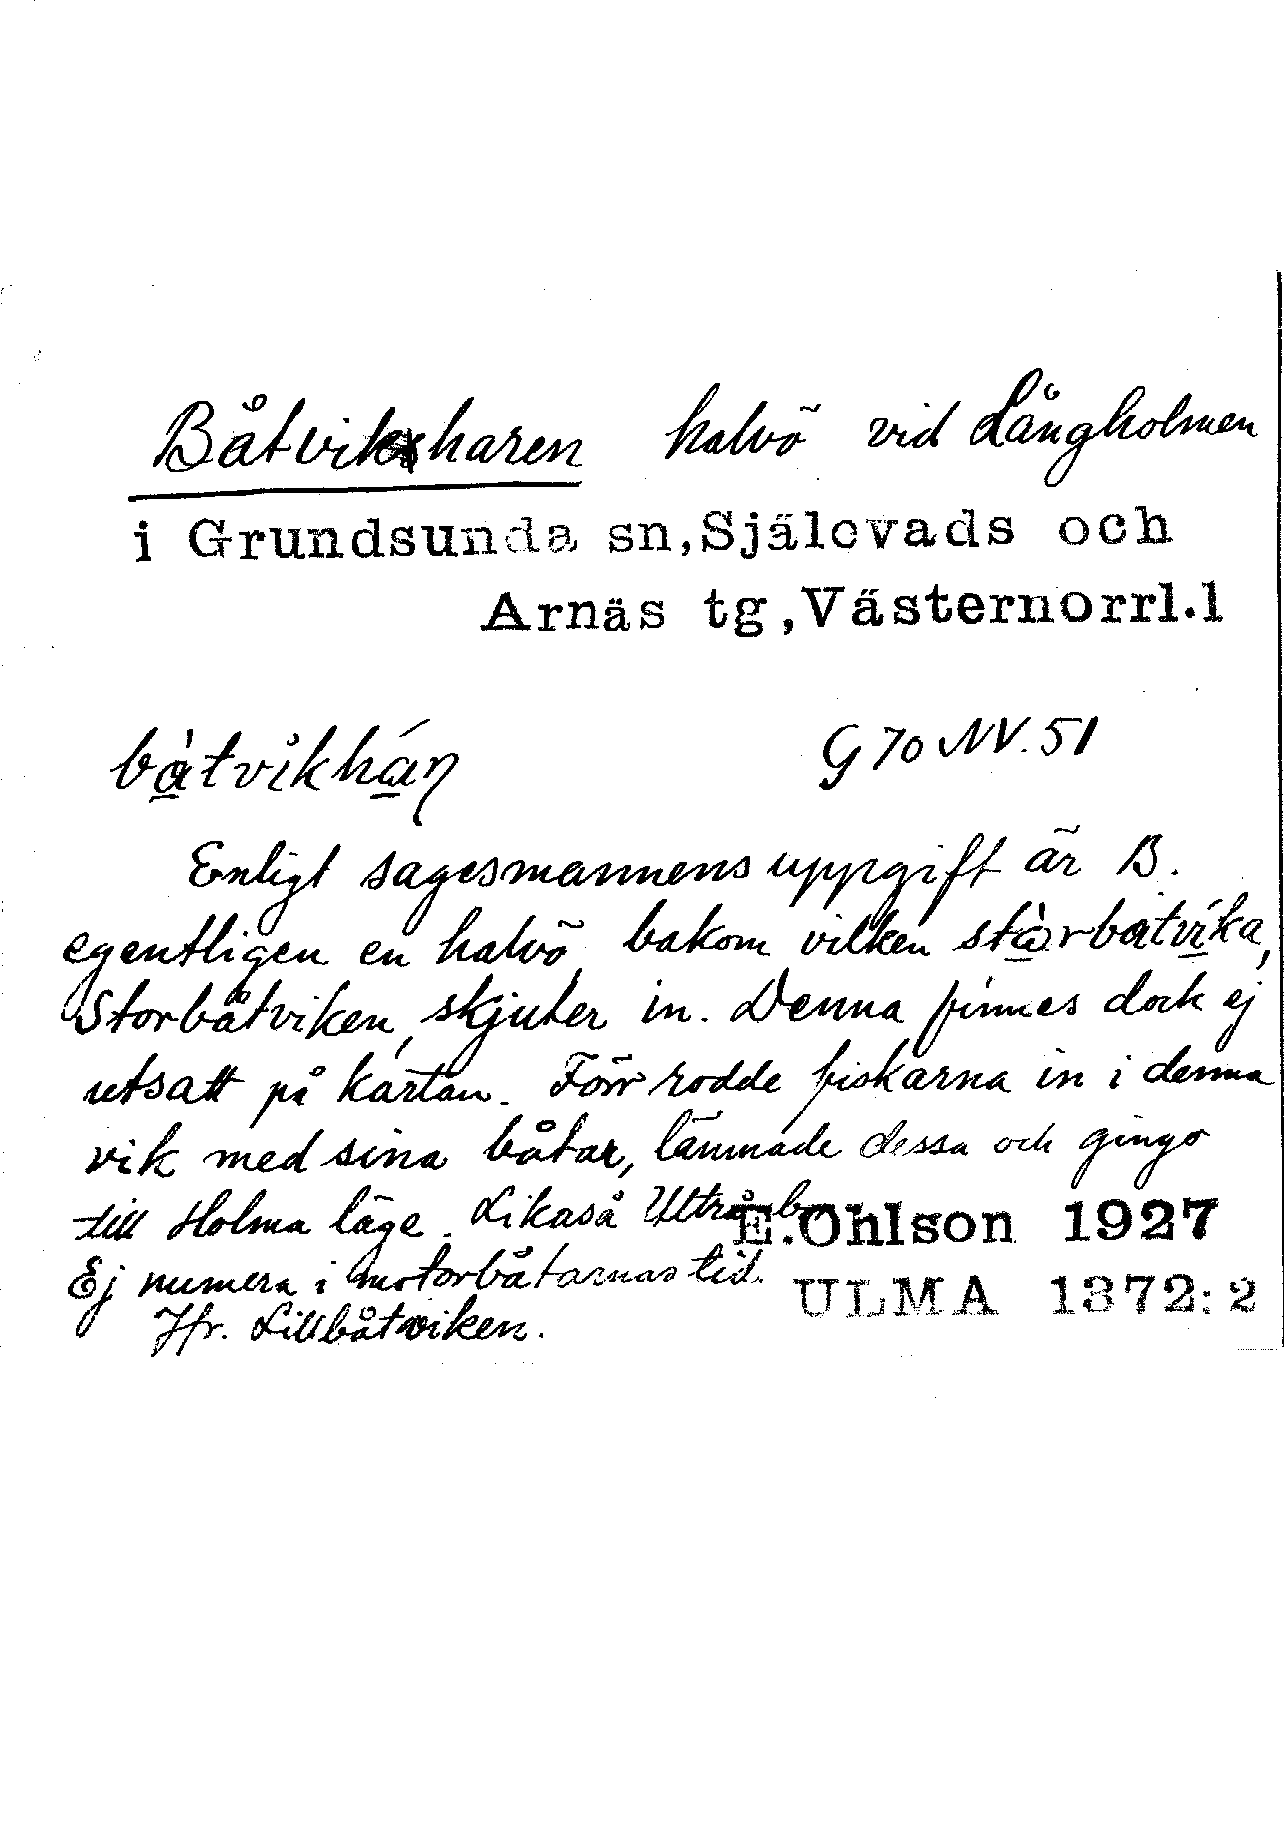 Båtviksharen halvö vid Långholmen
i Grundsunda sn, Själevads och
Arnäs tg, Västernorrl.l
bàtvikhán G 70 NV. 51
Enligt sagesmannens uppgift är B.
egentligen en halvö bakom vilken stòrbatvíka,
Storbåtviken, skjuter in. Denna finnes dock ej
utsatt på kartan. Förr rodde fiskarna in i denna
vik med sina båtar, lämnade dessa och gingo
till Holma läge. Likaså
E. Ohlson 1927
Ej numera i motorbåtarnas tid.
ULMA 1372:2
Jfr. Lillbåtviken.